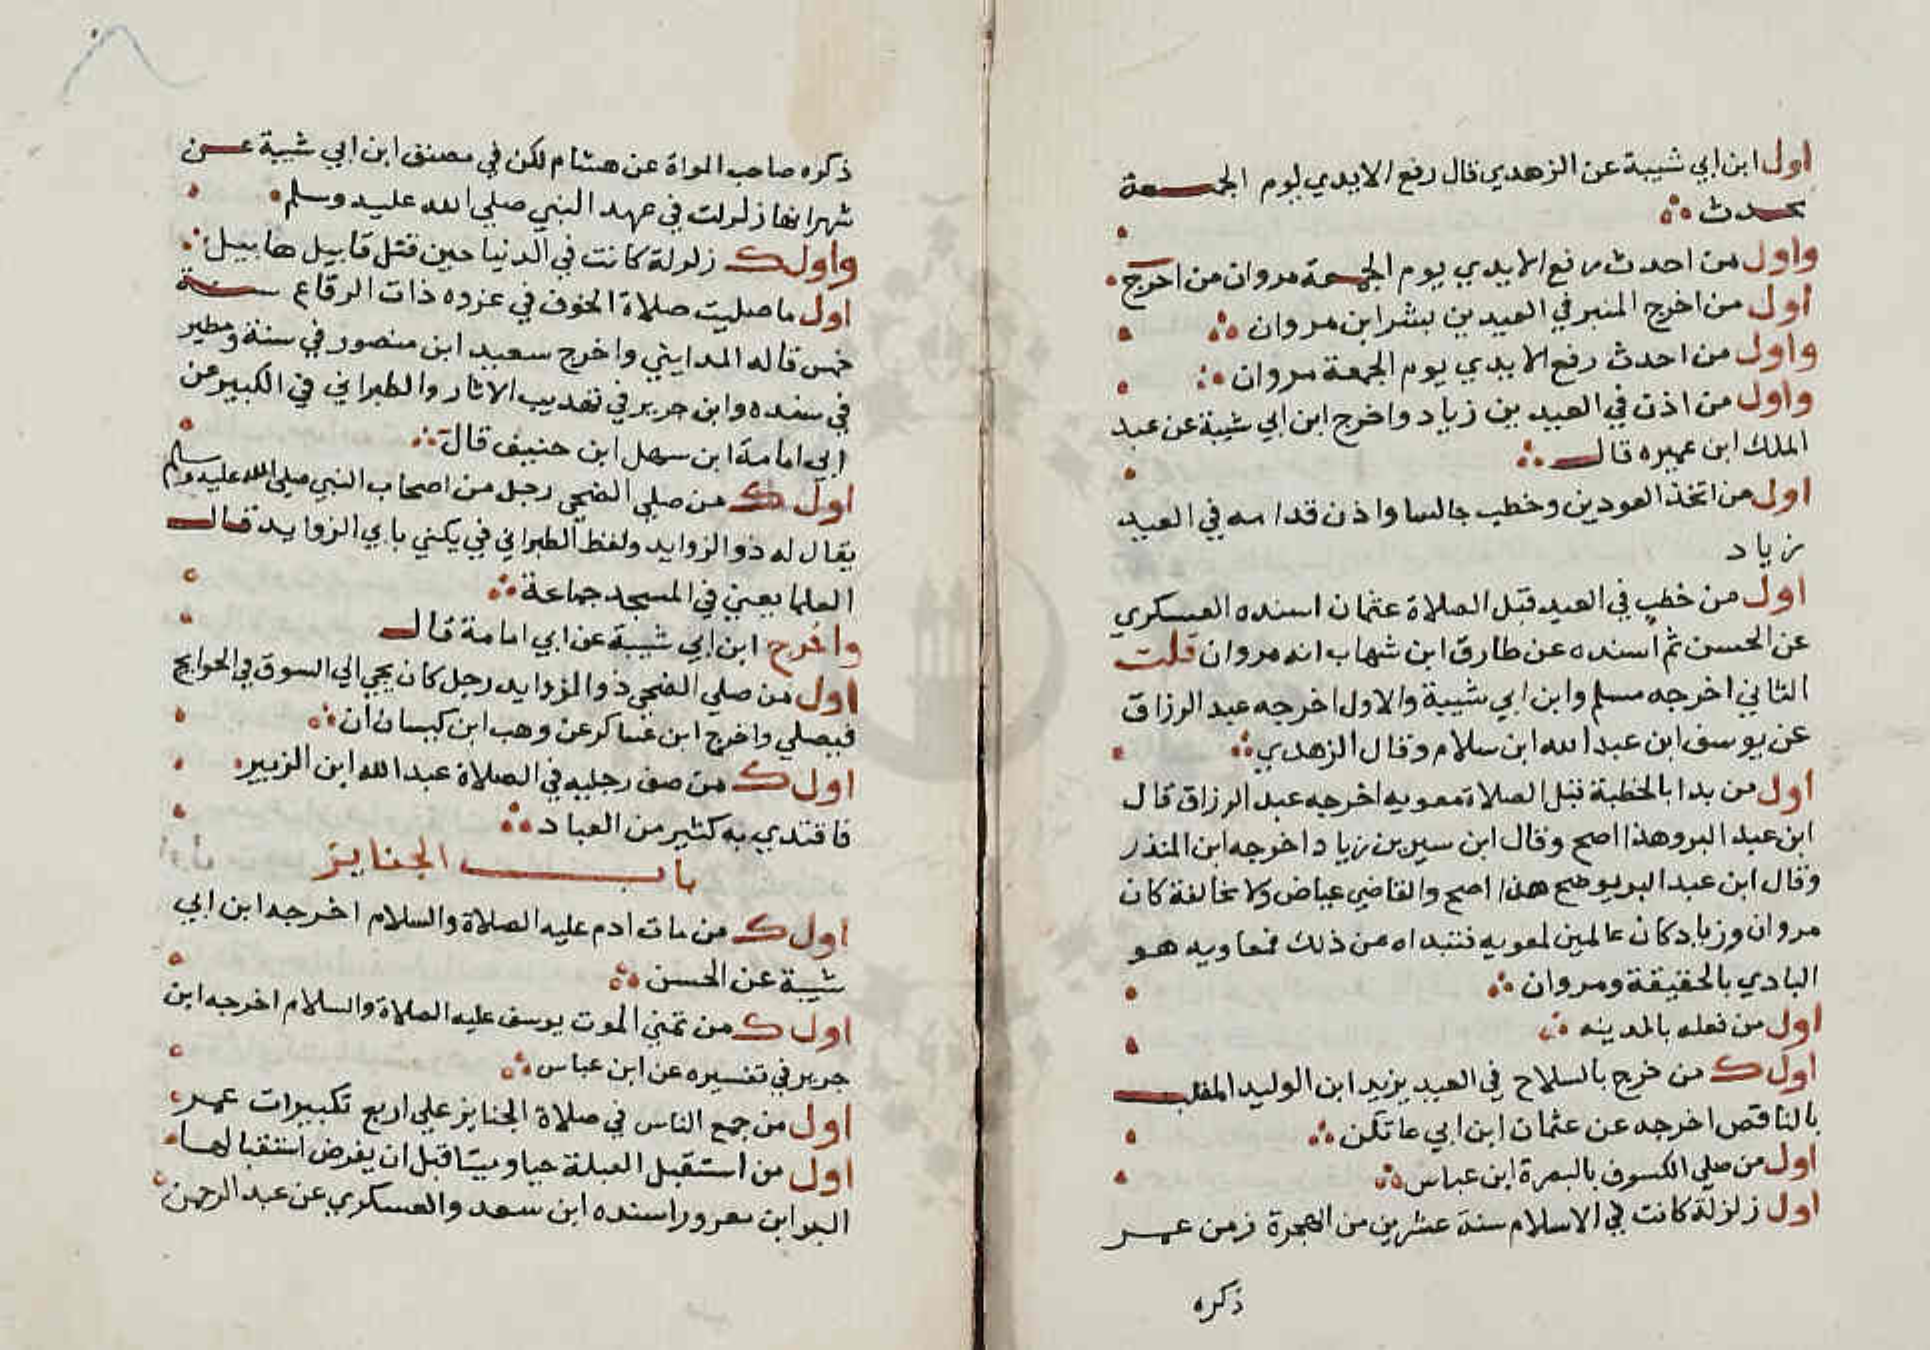 اول ابن ابي شيبة عن الزهدي قال رفع الايدي يوم الجمعة
محدث
واول من احدث رفع الايدي يوم الجمعة مروان من اخرج
اول من اخرج المنبر في العيدين بشر ابن مروان
واول من احدث رفع الايدي يوم الجمعة مروان
واول من اذن في العيد بن زياد واخرج ابن ابي شيبة عن عبد
الملك ابن عميره قال
اول من اتخذ العودين وخطب جالسا واذن قدامه في العيد
زياد
اول من خطب في العيد قبل الصلاة عثمان اسنده العسكري
عن الحسن ثم اسنده عن طارق ابن شهاب انه مروان قلت
الثاني اخرجه مسلم وابن ابي شيبة والاول اخرجه عبد الرزاق
عن يوسف ابن عبد الله ابن سلام وقال الزهدي
اول من بدا بالخطبة قبل الصلاة معويه اخرجه عبد الرزاق قال
ابن عبد البر وهذا اصح وقال ابن سيرين زياد اخرجه ابن المنذر
وقال ابن عبد البر يوضح هذا اصح والقاضي عياض ولا مخالفة كان
مروان وزياد كان عالمين لمعويه فتبداه من ذلك فمعاويه هو
البادي بالحقيقة ومروان
اول من فعله بالمدينه
اول ك من خرج بالسلاح في العيد يزيد ابن الوليد الملقب
بالناقص اخرجه عن عثمان ابن ابي عاتكن
اول من صلي الكسوف بالبصرة ابن عباس
اول زلزلة كانت في الاسلام سنة عشرين من الهجرة زمن عمر
ذكره
ذكره صاحب المراة عن هشام لكن في مصنف ابن ابي شيبة عن
شهر انها زلزلت في عهد النبي صلي الله عليه وسلم
واول ك زلزلة كانت في الدنيا حين قتل قابيل هابيل
اول ما صليت صلاة الخوف في عزوه ذات الرقاع سنة
خمس قاله المدايني واخرج سعيد ابن منصور في سننه ومطير
في سنده وابن جرير في تهذيب الاثار والطبراني في الكبير عن
ابي امامة ابن سهل ابن حنيف قال
اول ك من صلي الضحي رجل من اصحاب النبي صلى الله عليه وسلم
يقال له ذو الزوايد ولفظ الطبراني في يكني باي الزوايد قال
العلما يعني في المسجد جماعة
واخرج ابن ابي شيبة عن ابي امامة قال
اول من صلي الضحي ذو الزوايد رجل كان يجي الي السوق في الحوايج
فيصلي واخرج ابن عساكر عن وهب ابن كيسان ان
اول ك من صف رجليه في الصلاة عبد الله ابن الزبير
فاقتدي به كثير من العباد
باب الجنايز
اول ك من مات ادم عليه الصلاة والسلام اخرجه ابن ابي
شيبة عن الحسن
اول ك من تمني الموت يوسف عليه الصلاة والسلام اخرجه ابن
جرير في تفسيره عن ابن عباس
اول من جمع الناس في صلاة الجنايز علي اربع تكبيرات عمر
اول من استقبل القبلة حيا وميتا قبل ان يفرض استقبالها
البرو ابن معرور اسنده ابن سعد والعسكري عن عبد الرحمن